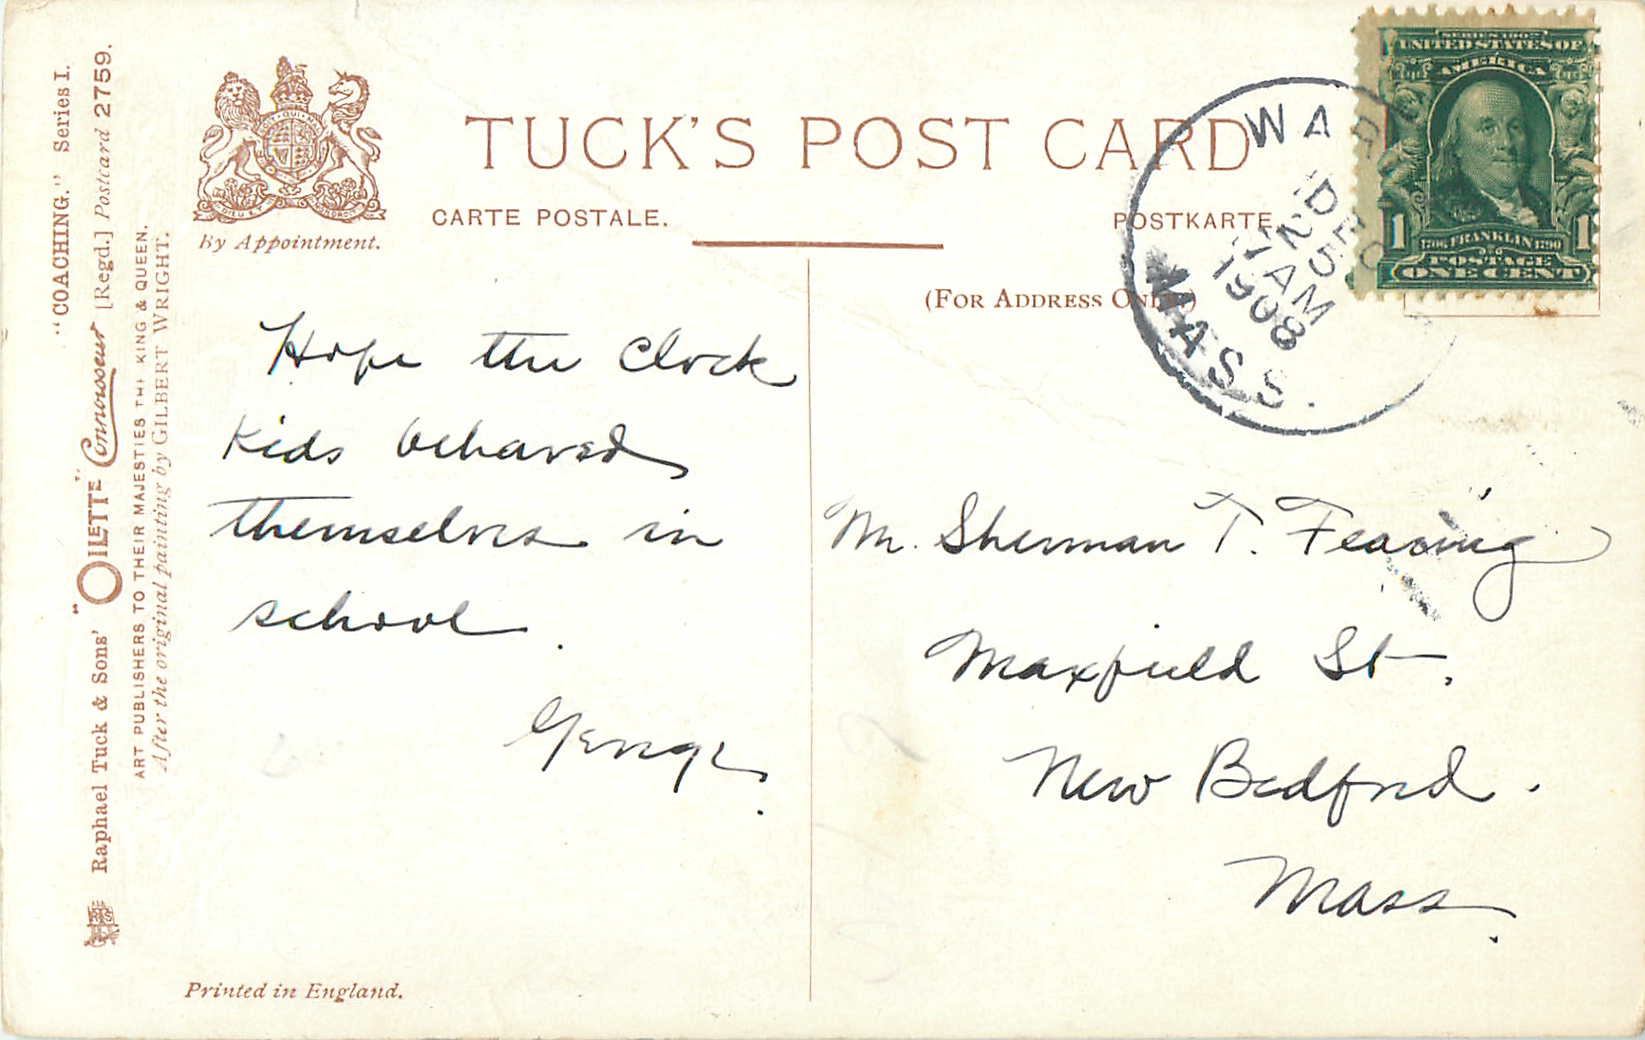 "COACHING." Series I.
Raphael Tuck & Sons' "OILETTE" Connoisseur [Regd.] Postcard 2759.
ART PUBLISHERS TO THEIR MAJESTIES THE KING & QUEEN.
After the original painting by GILBERT WRIGHT.
By Appointment.
TUCK'S POST CARD
CARTE POSTALE.
POSTKARTE.
(FOR ADDRESS ONLY)
SERIES 1902
UNITED STATES OF
AMERICA
1706 FRANKLIN 1790
1 1
POSTAGE
ONE CENT
DEC
25
7 AM
1908
MASS.
Hope the clock
kids behaved
themselves in
school.
George.
Mr. Sherman T. Fearing
Maxfield St.
New Bedford.
Mass.
Printed in England.